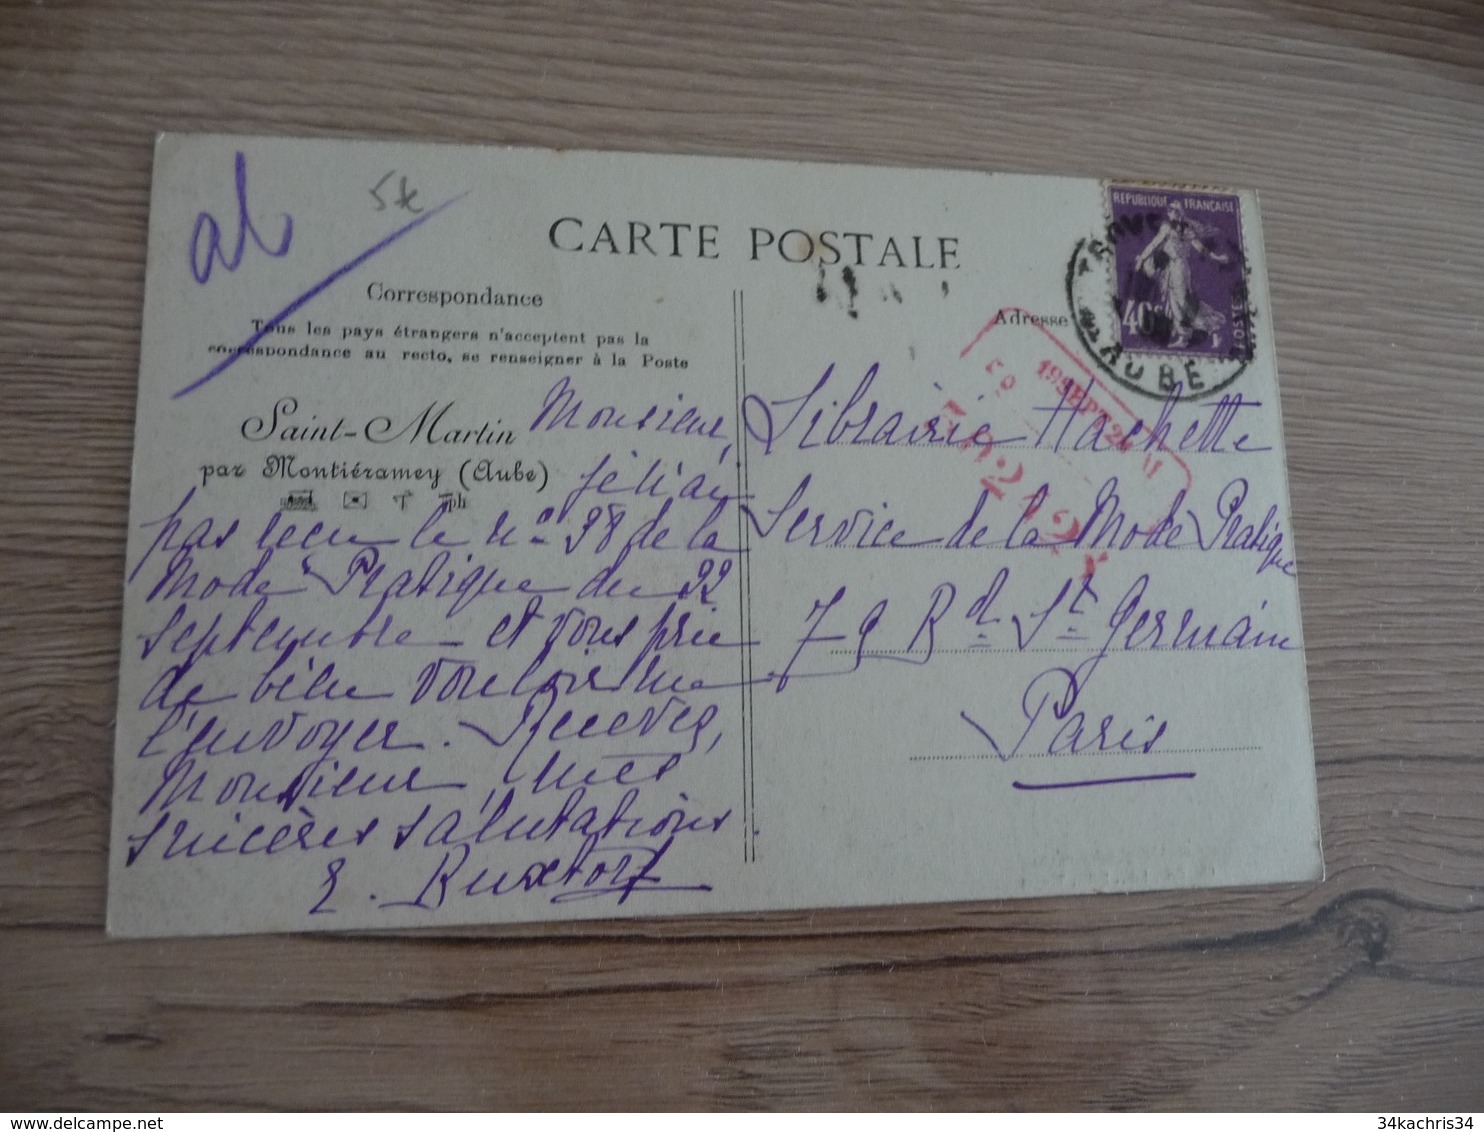 al
5€
CARTE POSTALE
Correspondance
Tous les pays étrangers n'acceptent pas la
correspondance au recto, se renseigner à la Poste
Saint-Martin
par Montiéramey (Aube)
Monsieur,
je n'ai
pas reçu le nº 38 de la
Mode Pratique du 22
septembre et vous prie
de bien vouloir me
l'envoyer. Recevez,
Monsieur, mes
sincères salutations.
E. Buxtorf
Adresse
REPUBLIQUE FRANÇAISE
40c
POSTES
AUBE
19 SEPT 24
Librairie Hachette
Service de la Mode Pratique
79 Bd St Germain
Paris
34kachris34